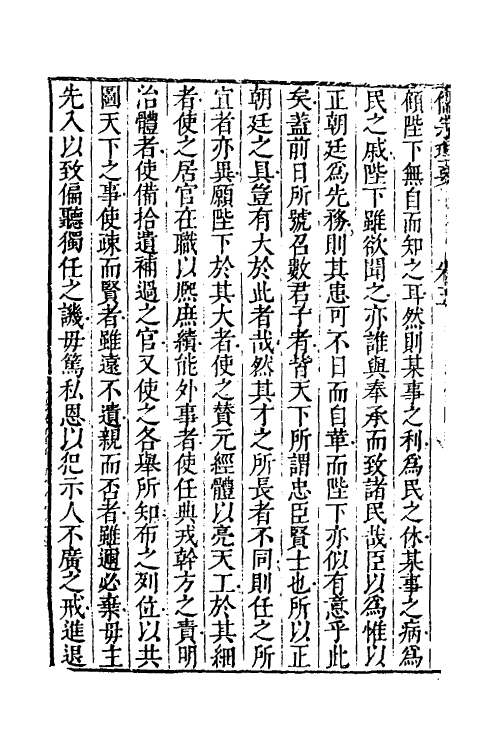 傾陛下無自而知之耳然則某事之利爲民之休某事之病爲
民之戚陛下雖欲聞之亦誰與奉承而致諸民哉臣以為惟以
正朝廷爲先務則其患可不日而自革而陛下亦似有意乎此
矣蓋前日所號召數君子者皆天下所謂忠臣賢士也所以正
朝廷之具豈有大於此者哉然其才之所長者不同則任之所
宜者亦異願陛下於其大者使之贊元經體以亮天工於其細
者使之居官在職以熈庶績能外事者使任典戎幹方之責明
治體者使備拾遺補過之官又使之各舉所知布之列位以共
圖天下之事使疎而賢者雖遠不遺親而否者雖邇必棄毋主
先入以致偏聽獨任之譏毋篤私恩以犯示人不廣之戒進退